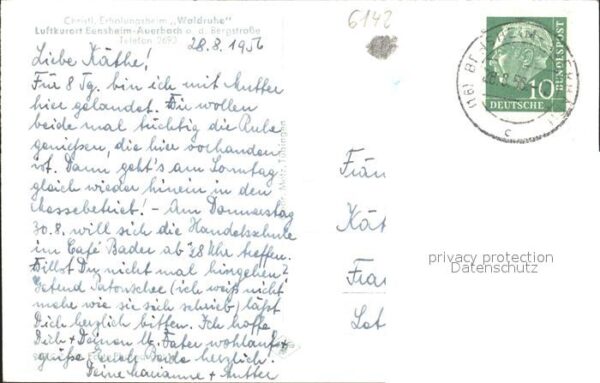 Christl. Erholungsheim „Waldruhe"
Luftkurort Bensheim-Auerbach a. d. Bergstraße
Telefon 2693
28.8.1956
6142
Liebe Käthe!
Für 8 Tg. bin ich mit Mutter
hier gelandet. Wir wollen
beide mal tüchtig die Ruhe
genießen, die hier vorhanden
ist. Dann geht's am Sonntag
gleich wieder hinein in den
Messebetrieb! - Am Donnerstag
30.8. will sich die Handelsschule
im Café Bader ab 1/2 8 Uhr treffen.
Willst Du nicht mal hingehen?
(ich weiß nicht
mehr wie sie sich schrieb) läßt
Dich herzlich bitten. Ich hoffe
Dich + Deinen lb. Vater wohlauf +
grüße Euch Beide herzlich.
Deine Marianne + Mutter
DEUTSCHE
BUNDESPOST
10
(16) BENSHEIM
28.8.56
c
Fräu
Kät
Fra
privacy protection
Datenschutz